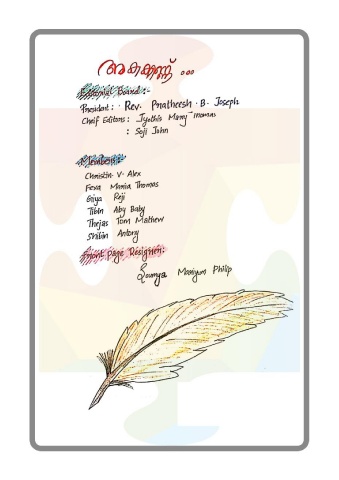 അകക്കണ്ണ് ...
Editorial Board :-
President : Rev. Pratheesh . B. Joseph
Cheif Editors : Jyothis Mary Thomas
: Soji John
Members:
Christin V. Alex
Feva Maria Thomas
Griya Reji
Tibin Aby Baby
Thejas Tom Mathew
Shibin Antony
Front page Designer:
Soumya Mariyam Philip